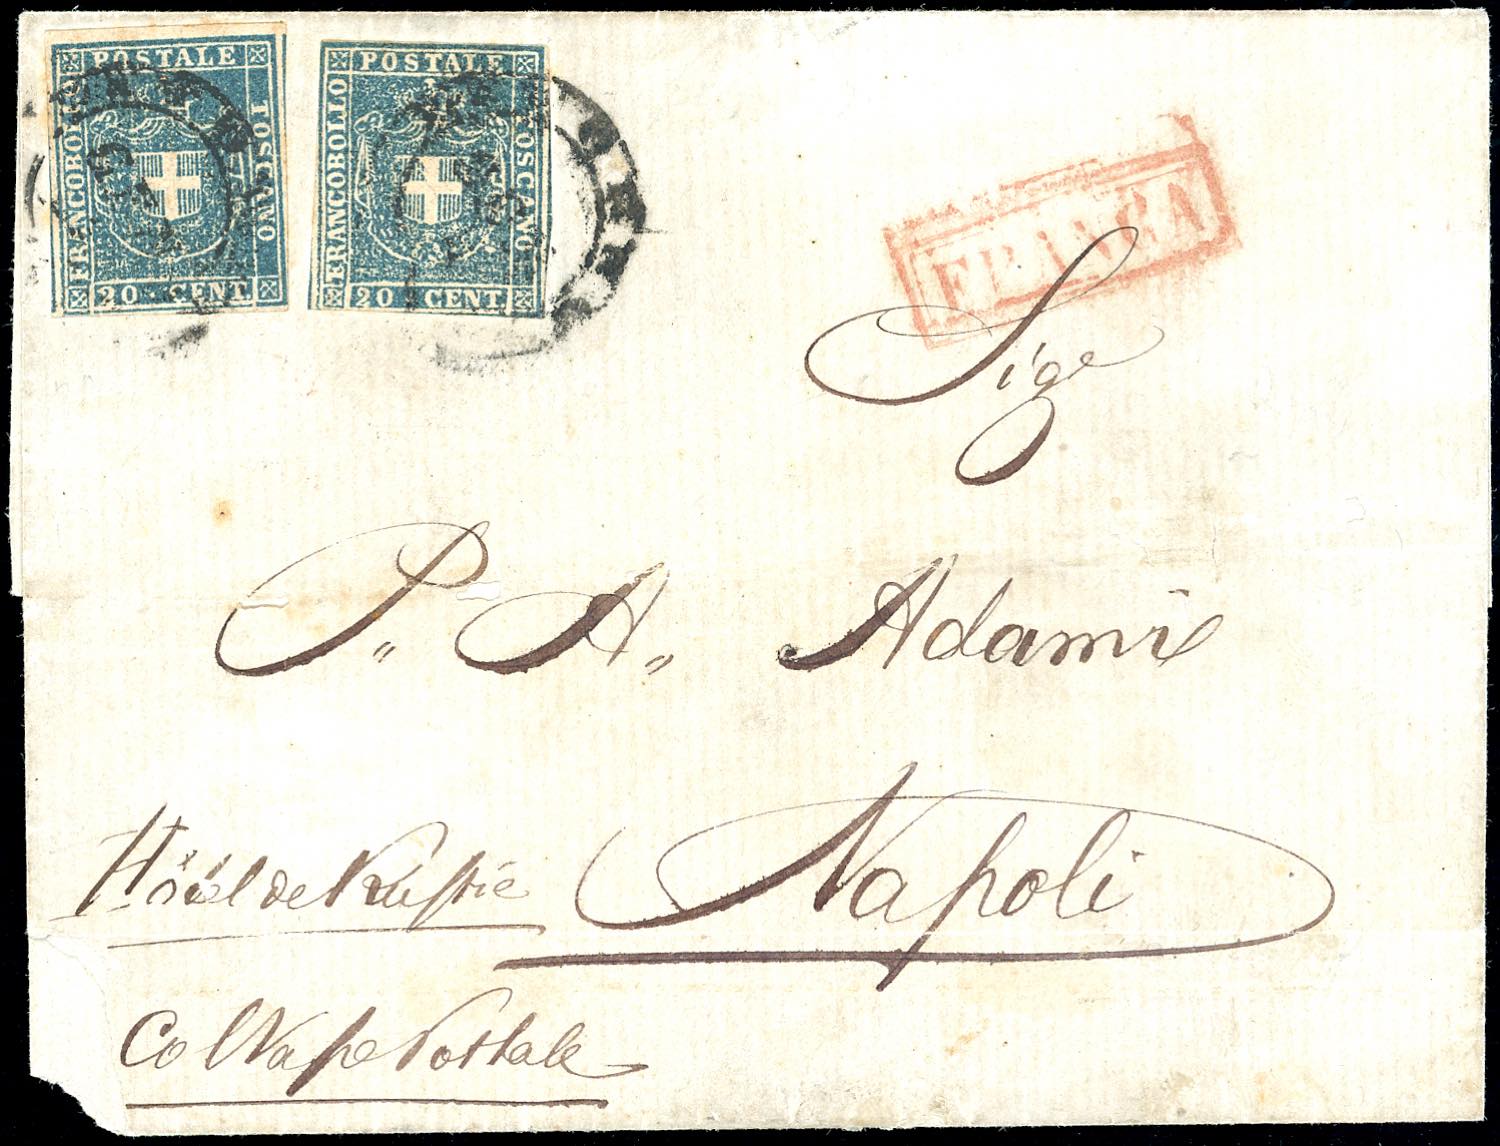 POSTALE
FRANCOBOLLO
TOSCANO
20 · CENT
POSTALE
FRANCOBOLLO
TOSCANO
20 CENT.
FRANCA
Sige
P.. A.. Adami
Napoli
Hôtel de
Col Postale